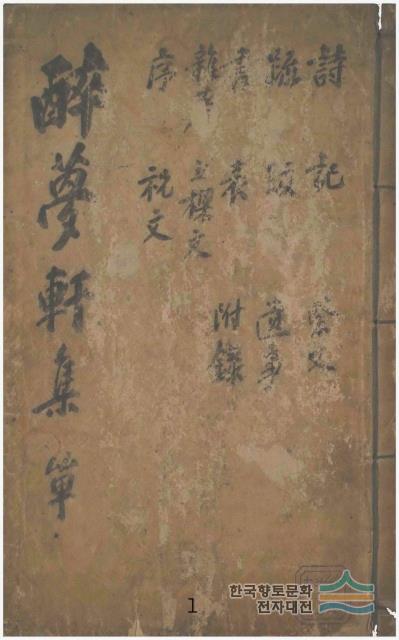 詩 記 祭文
疏 跋 遺事
書 表 附錄
雜著 上樑文
序 祝文
醉夢軒集 單
1
한국향토문화
전자대전